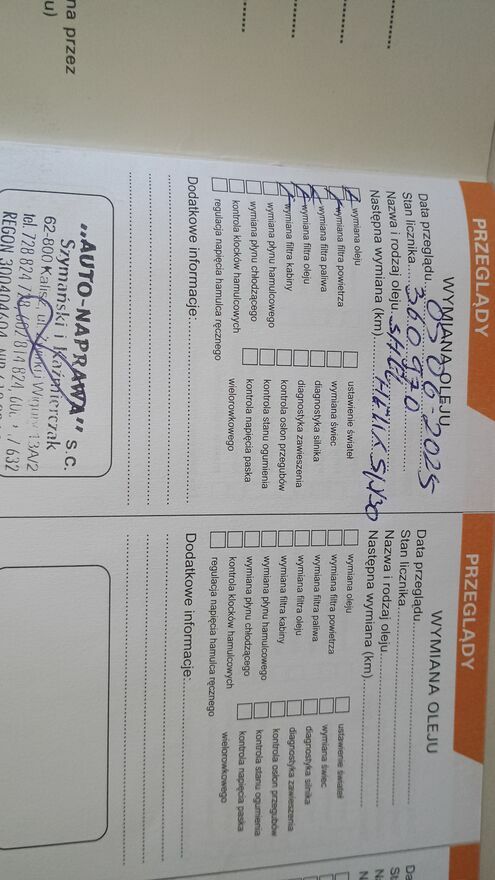 na przez
u)
PRZEGLĄDY
WYMIANA OLEJU
Data przeglądu 05-06-2025
Stan licznika 360970
Nazwa i rodzaj oleju SHELL HELIX 5W30
Następna wymiana (km)
wymiana oleju
wymiana filtra powietrza
wymiana filtra paliwa
wymiana filtra oleju
wymiana filtra kabiny
wymiana płynu hamulcowego
wymiana płynu chłodzącego
kontrola klocków hamulcowych
regulacja napięcia hamulca ręcznego
ustawienie świateł
wymiana świec
diagnostyka silnika
diagnostyka zawieszenia
kontrola osłon przegubów
kontrola stanu ogumienia
kontrola napięcia paska
wielorowkowego
Dodatkowe informacje:
„AUTO-NAPRAWA" s.c.
Szymański i Kaźmierczak
62-800 Kalisz, ul. 13A/2
tel. 728 824
REGON 300404604
PRZEGLĄDY
WYMIANA OLEJU
Data przeglądu
Stan licznika
Nazwa i rodzaj oleju
Następna wymiana (km)
wymiana oleju
wymiana filtra powietrza
wymiana filtra paliwa
wymiana filtra oleju
wymiana filtra kabiny
wymiana płynu hamulcowego
wymiana płynu chłodzącego
kontrola klocków hamulcowych
regulacja napięcia hamulca ręcznego
ustawienie świateł
wymiana świec
diagnostyka silnika
diagnostyka zawieszenia
kontrola osłon przegubów
kontrola stanu ogumienia
kontrola napięcia paska
wielorowkowego
Dodatkowe informacje:
Da
St
Na
N